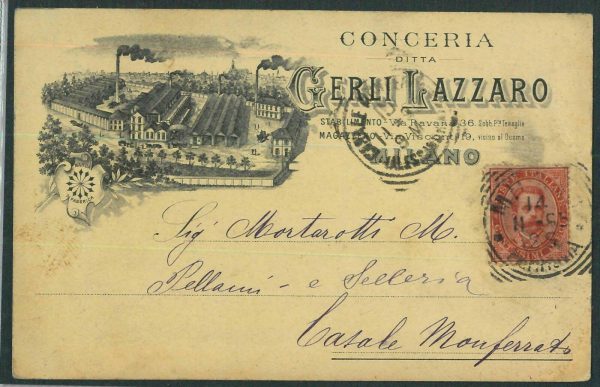 CONCERIA
DITTA
GERLI LAZZARO
STABILIMENTO - Via Ravana, 36. Sobb. Pta Tenaglia
MAGAZZENO - Via Visconti, 19, vicino al Duomo
MILANO
FABBRICA
14
Sigr Mortarotti M.
Pellami - e Selleria
Casale Monferrato